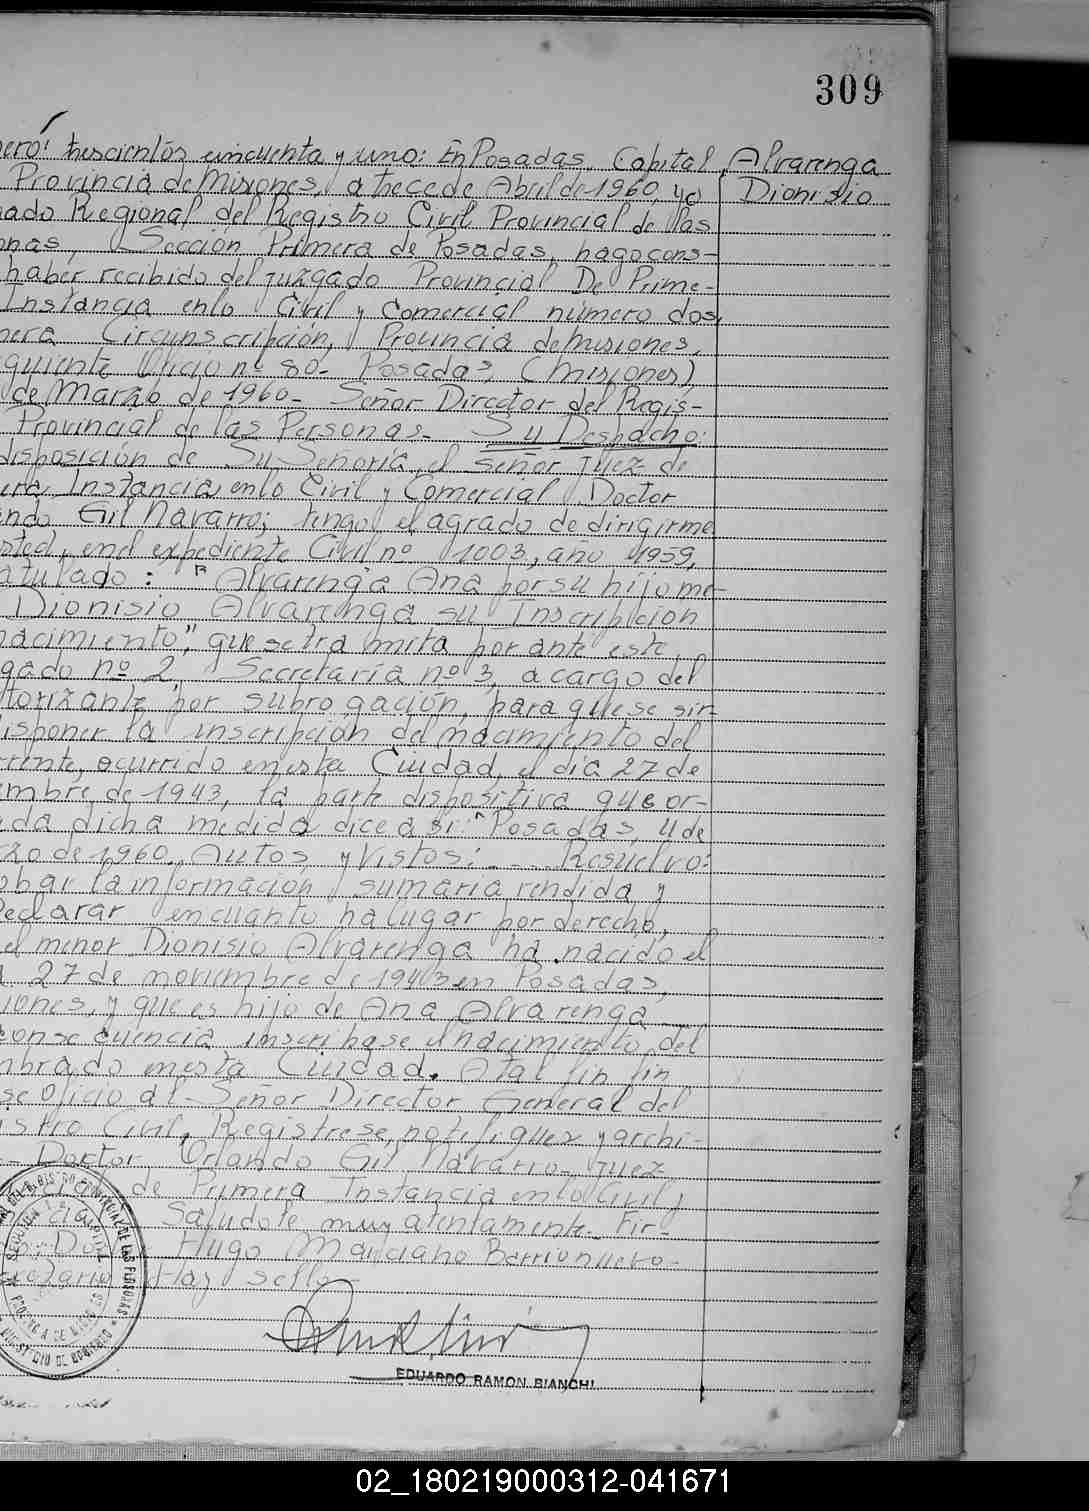 309
ero: trescientos cincuenta y uno: En Posadas, Capital, Alvarenga
Provincia de Misiones, a trece de Abril de 1960, yo Dionisio
ado Regional del Registro Civil Provincial de las
onas, Sección Primera de Posadas, hago cons-
haber recibido del Juzgado Provincial De Prime-
Instancia en lo Civil y Comercial número dos,
mera Circunscripción, Provincia de Misiones,
guiente Oficio nº 80- Posadas, (Misiones),
de Marzo de 1960- Señor Director del Regis-
Provincial de las Personas- Su Despacho:
disposición de Su Señoria, el Señor Juez de
era Instancia en lo Civil y Comercial Doctor
ando Gil Navarro; tengo el agrado de dirigirme
sted, en el expediente Civil nº 1003, año 1959,
atulado: "Alvarenga Ana por su hijo me-
Dionisio Alvarenga su Inscripcion
nacimiento", que se tramita por ante este
gado nº 2, Secretaría nº 3, a cargo del
torizante por subrogación, para que se sir-
isponer la inscripción del nacimiento del
rrente, ocurrido en esta Ciudad, el día 27 de
embre de 1943, la parte dispositiva que or-
da dicha medida dice asi: "Posadas, 4 de
rzo de 1960. Autos y Vistos: Resuelvo:
obar la información sumaria rendida y
Declarar en cuanto ha lugar por derecho,
el menor Dionisio Alvarenga ha nacido el
27 de noviembre de 1943 en Posadas,
iones, y que es hijo de Ana Alvarenga
consecuencia inscribase el nacimiento del
mbrado en esta Ciudad. A tal fin fin
se Oficio al Señor Director General del
istro Civil, Registrese, notifiquez y archi-
Doctor Orlando Gil Navarro- Juez
de Primera Instancia en lo Civil y
Saludole muy atentamente- Fir-
Hugo Marciano Barrionuevo-
Hay sello-
EDUARDO RAMON BIANCHI
02_180219000312-041671